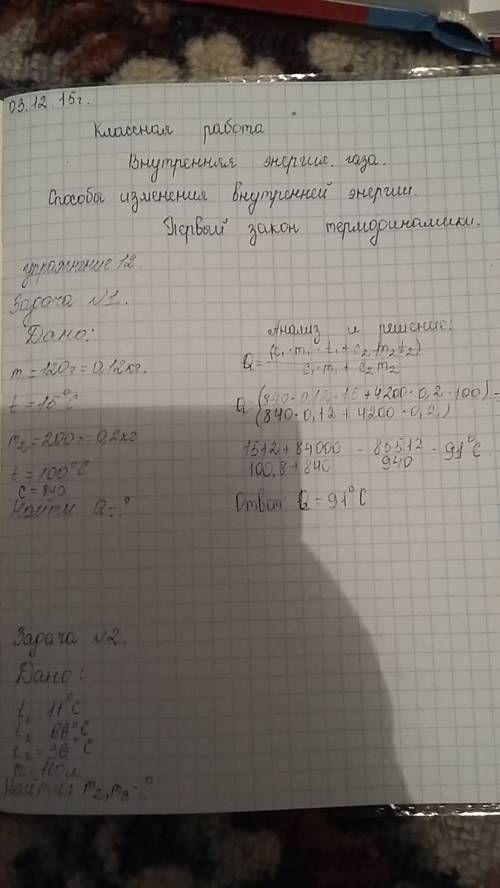 03.12.15г.
Классная работа
Внутренняя энергия газа.
Способы изменения внутренней энергии.
Первый закон термодинамики.
упражнение 12
Задача №1.
Дано:
m = 120г = 0,12кг.
t = 15°C
m₂ = 200г = 0,2кг
t = 100°C
c = 840
Найти Q = ?
Анализ и решение:
Q = (c₁·m₁·t₁ + c₂·m₂t₂) / c₁·m₁ + c₂m₂
Q = (840·0,12·15 + 4200·0,2·100) / (840·0,12 + 4200·0,2) =
1512 + 84000 / 100,8 + 840 = 85512 / 940 = 91°C
Ответ: Q = 91°C
Задача №2.
Дано:
t₁ = 11°C
t₂ = 66°C
t₃ = 36°C
m = 110л
Найти: m₂, m₃ - ?